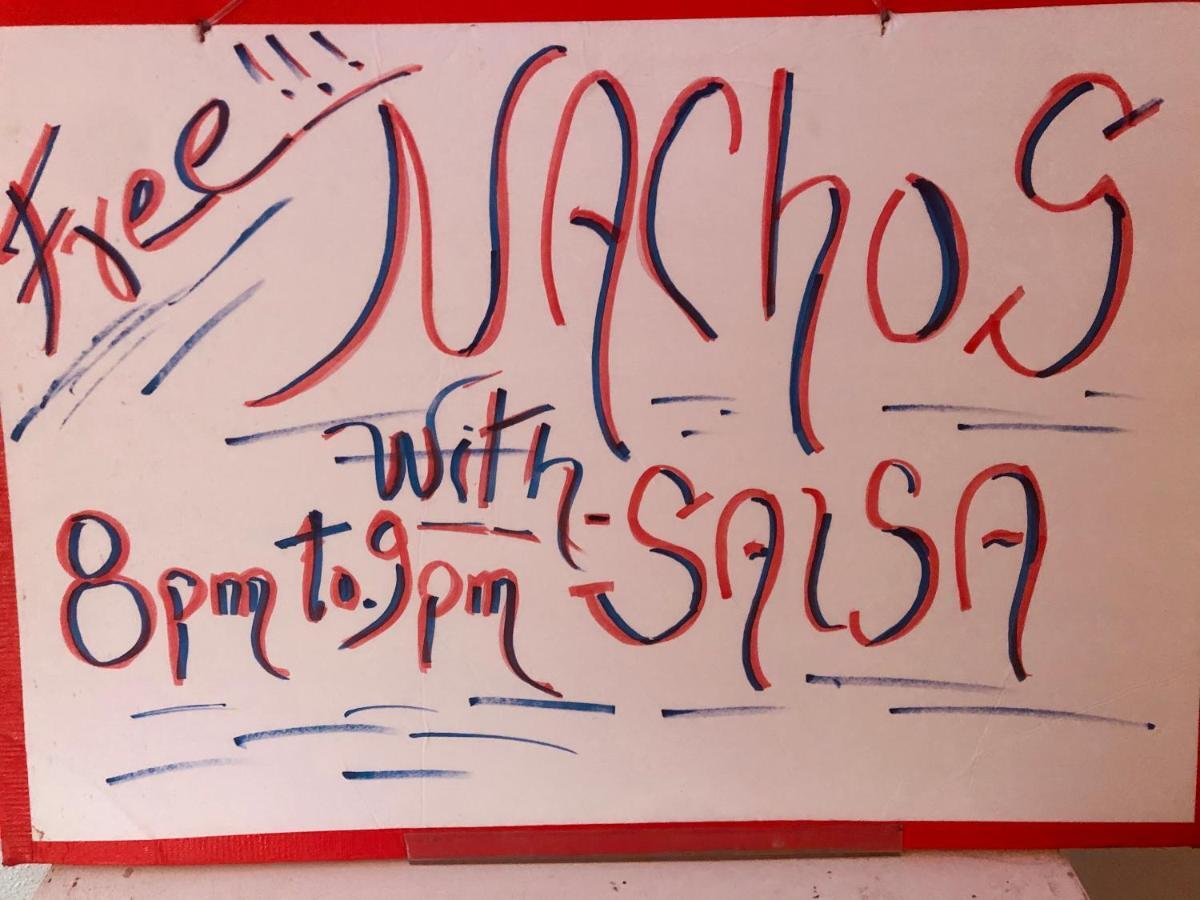 Free!!! NAChOS
with-
8pm to.9pm SALSA